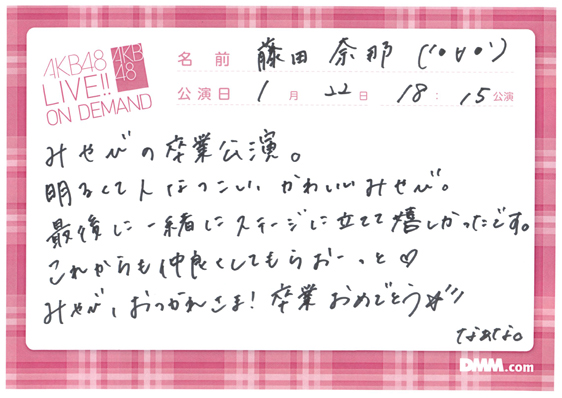 AKB48
LIVE!!
ON DEMAND
AKB
48
名前 藤田 奈那 ('•∀•')
公演日 1月 22日 18:15公演
みやびの卒業公演。
明るくて人なつこい、かわいいみやび。
最後に一緒にステージに立てて嬉しかったです。
これからも仲良くしてもらおーっと♡
みやび、おつかれさま！卒業おめでとう
なぁな。
DMM.com